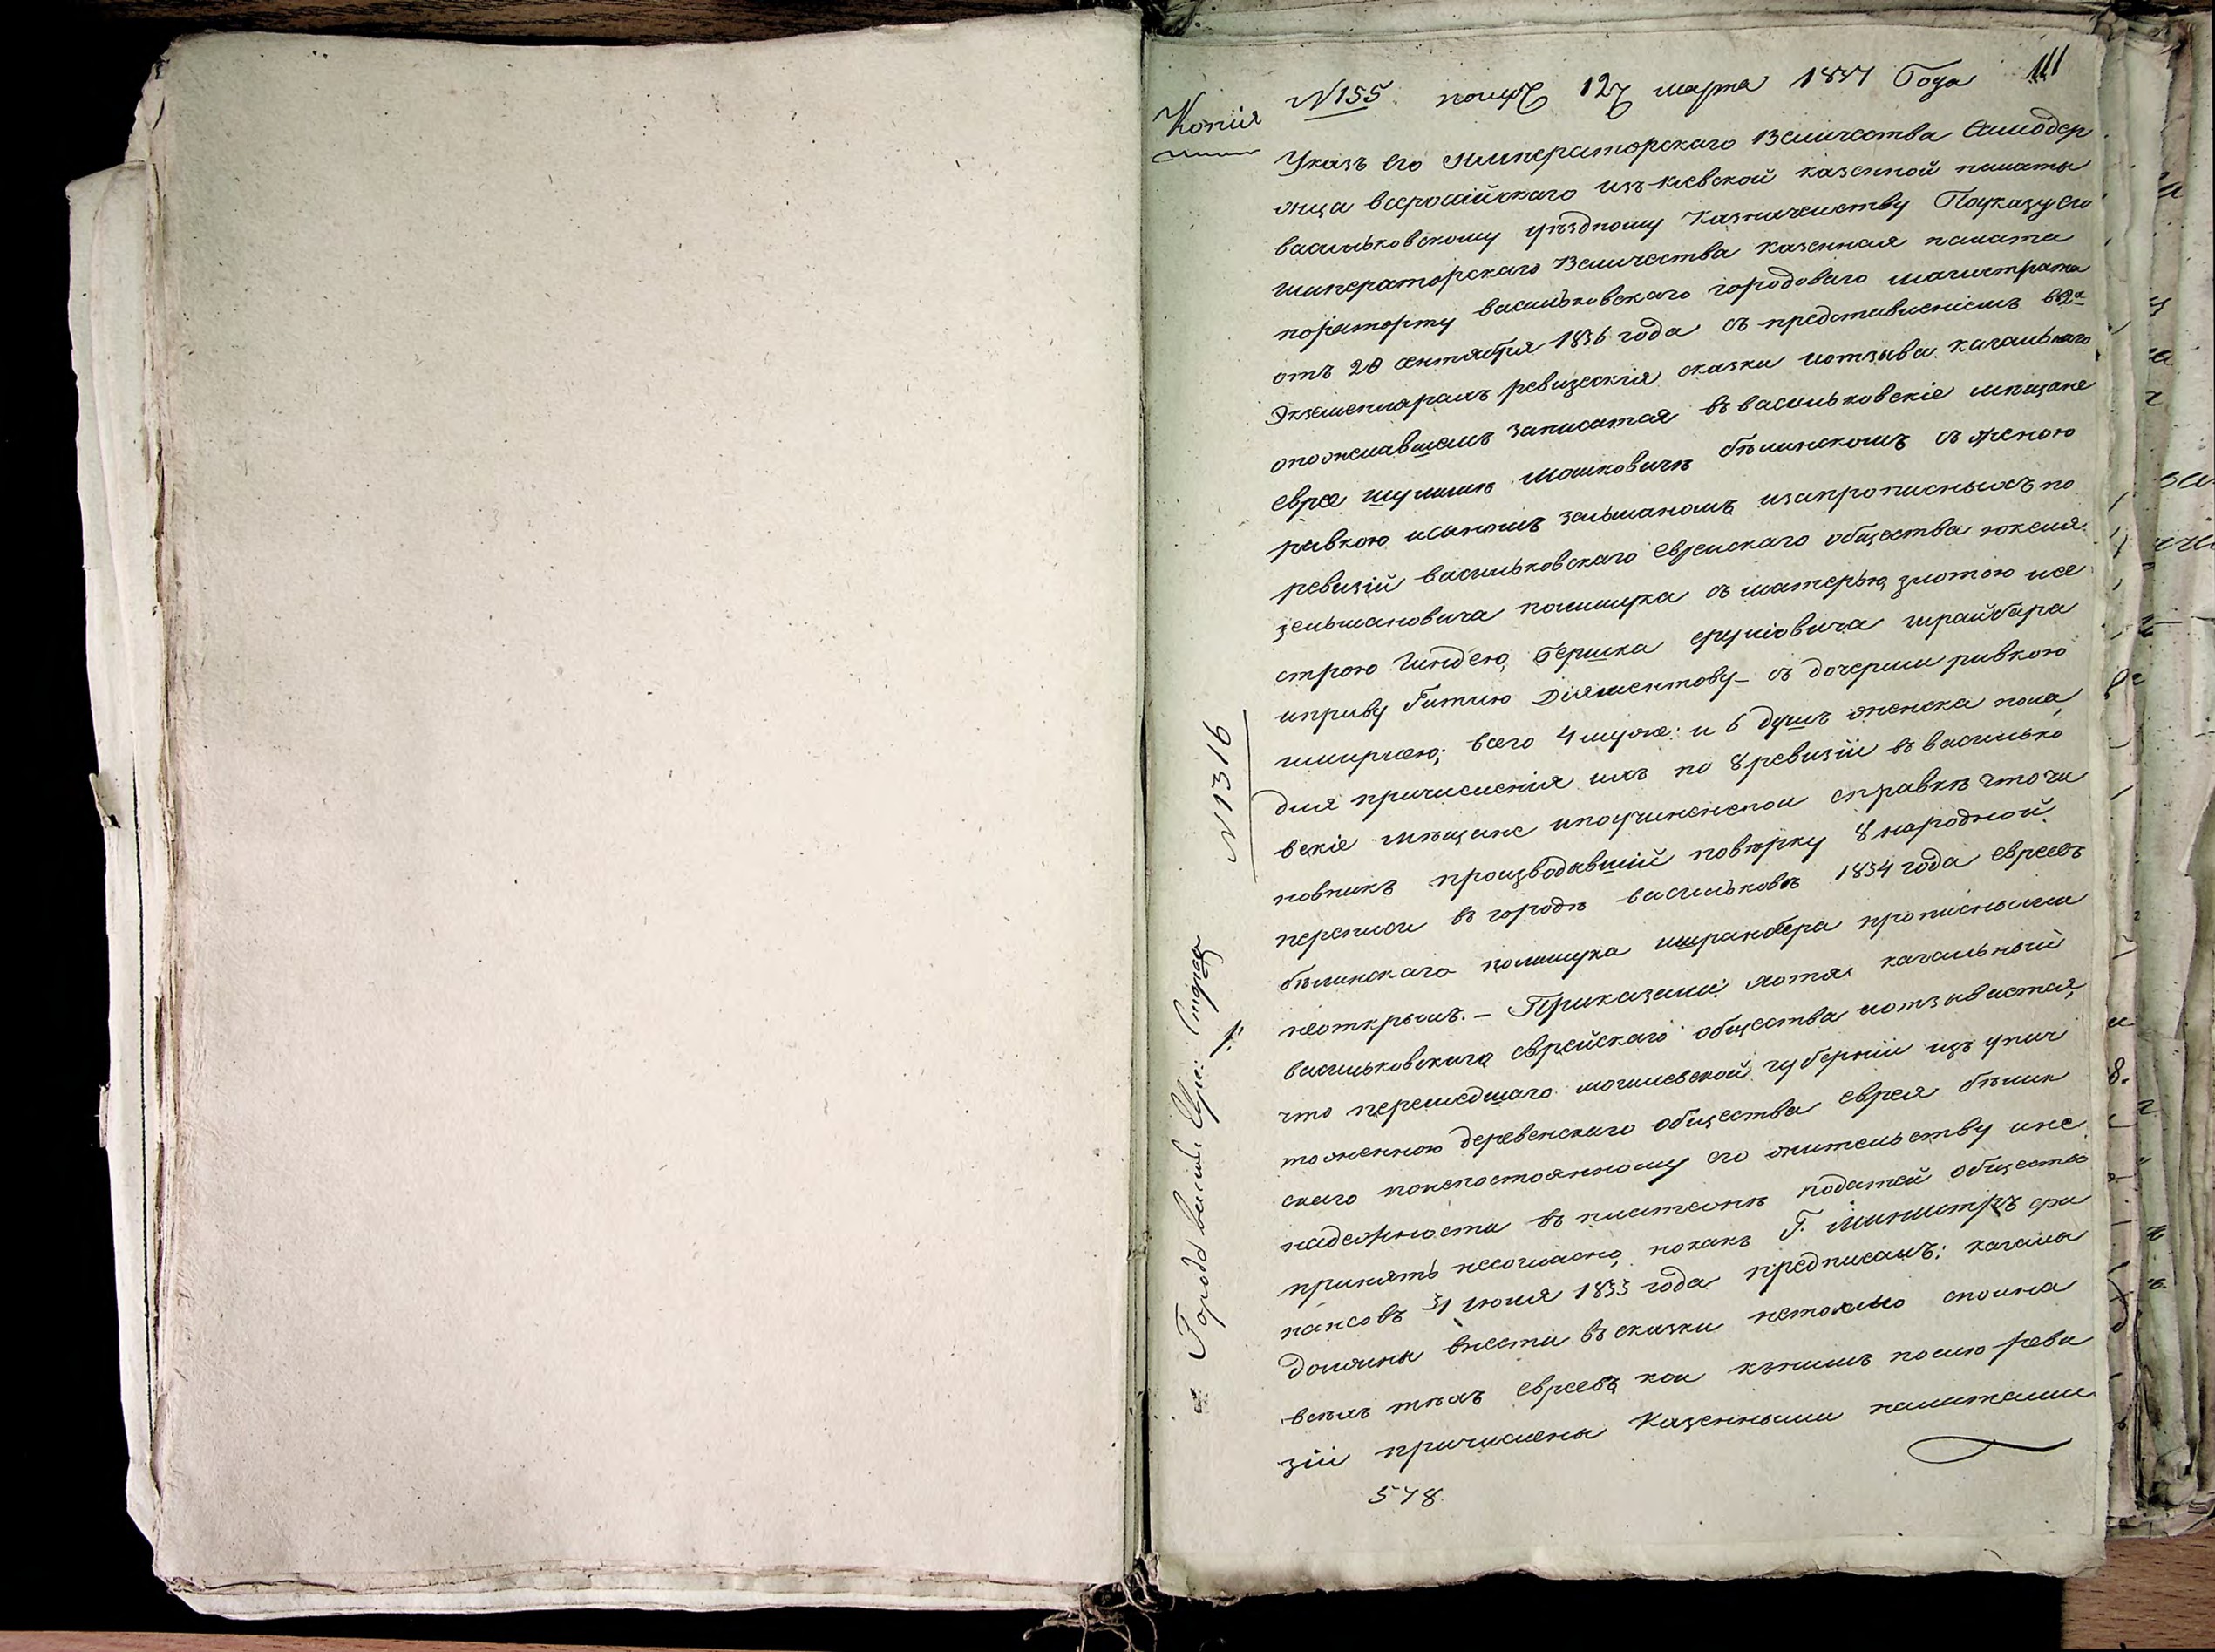 111
N155. получ 12 марта 1837 Года
Копія
Указъ его Императорскаго Величества Самодер
жца всероссійскаго изъ кіевской казенной палаты
васильковскому уѣздному Казначейству По указу его
императорскаго Величества казенная палата
по рапорту васильковскаго городоваго магистрата
отъ 20 сентября 1836 года съ представленіемъ въ 2х
Экземплярахъ ревизскія сказки и отзыва кагальнаго
о пожелавшемъ записатся въ васильковскіе мѣщане
еврее шулимѣ Мошковичѣ бѣлинскомъ съ женою
ривкою и сыномъ зельманомъ и за прописныхъ по
ревизіи васильковскаго еврейскаго общества
зельмановича полищука съ матерью златою и се
строю Гиндею, Гершка шрайбера
и Гитлю съ дочерьми ривкою
всего 4 муже: и 6 душъ женска пола,
для причисленія ихъ по 8 ревизіи въ василько
вскіе мѣщане и по учиненной справкѣ что чи
новникъ производившій повѣрку 8 народной
переписи въ городѣ васильковѣ 1834 года евреевъ
бѣлинскаго полищука и шрайбера прописными
не открылъ. – Приказали: хотя кагальный
васильковскаго еврейскаго общества и отзывается,
что перешедшаго могилевской губерніи изъ унич
тоженною деревенскаго общества еврея бѣлин
скаго по непостоянному его жительству и не
надежности въ платежѣ податей общество
принять несогласно, но какъ Г. Министръ фи
нансовъ 31 июля 1833 года предписалъ: кагалы
должны внести въ сказки не только
всѣхъ тѣхъ евреевъ кои къ нимъ послѣ реви
зіи причислены Казенными палатами
578
N1316
Городъ васил: